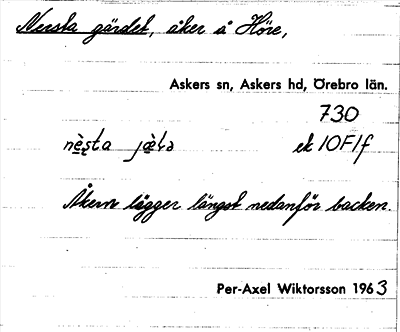 Nersta gärdet, åker å Höre,
Askers sn, Askers hd, Örebro län.
730
nè̞sta jæ̀ɫə ek 10F1f
Åkern ligger längst nedanför backen.
Per-Axel Wiktorsson 1963